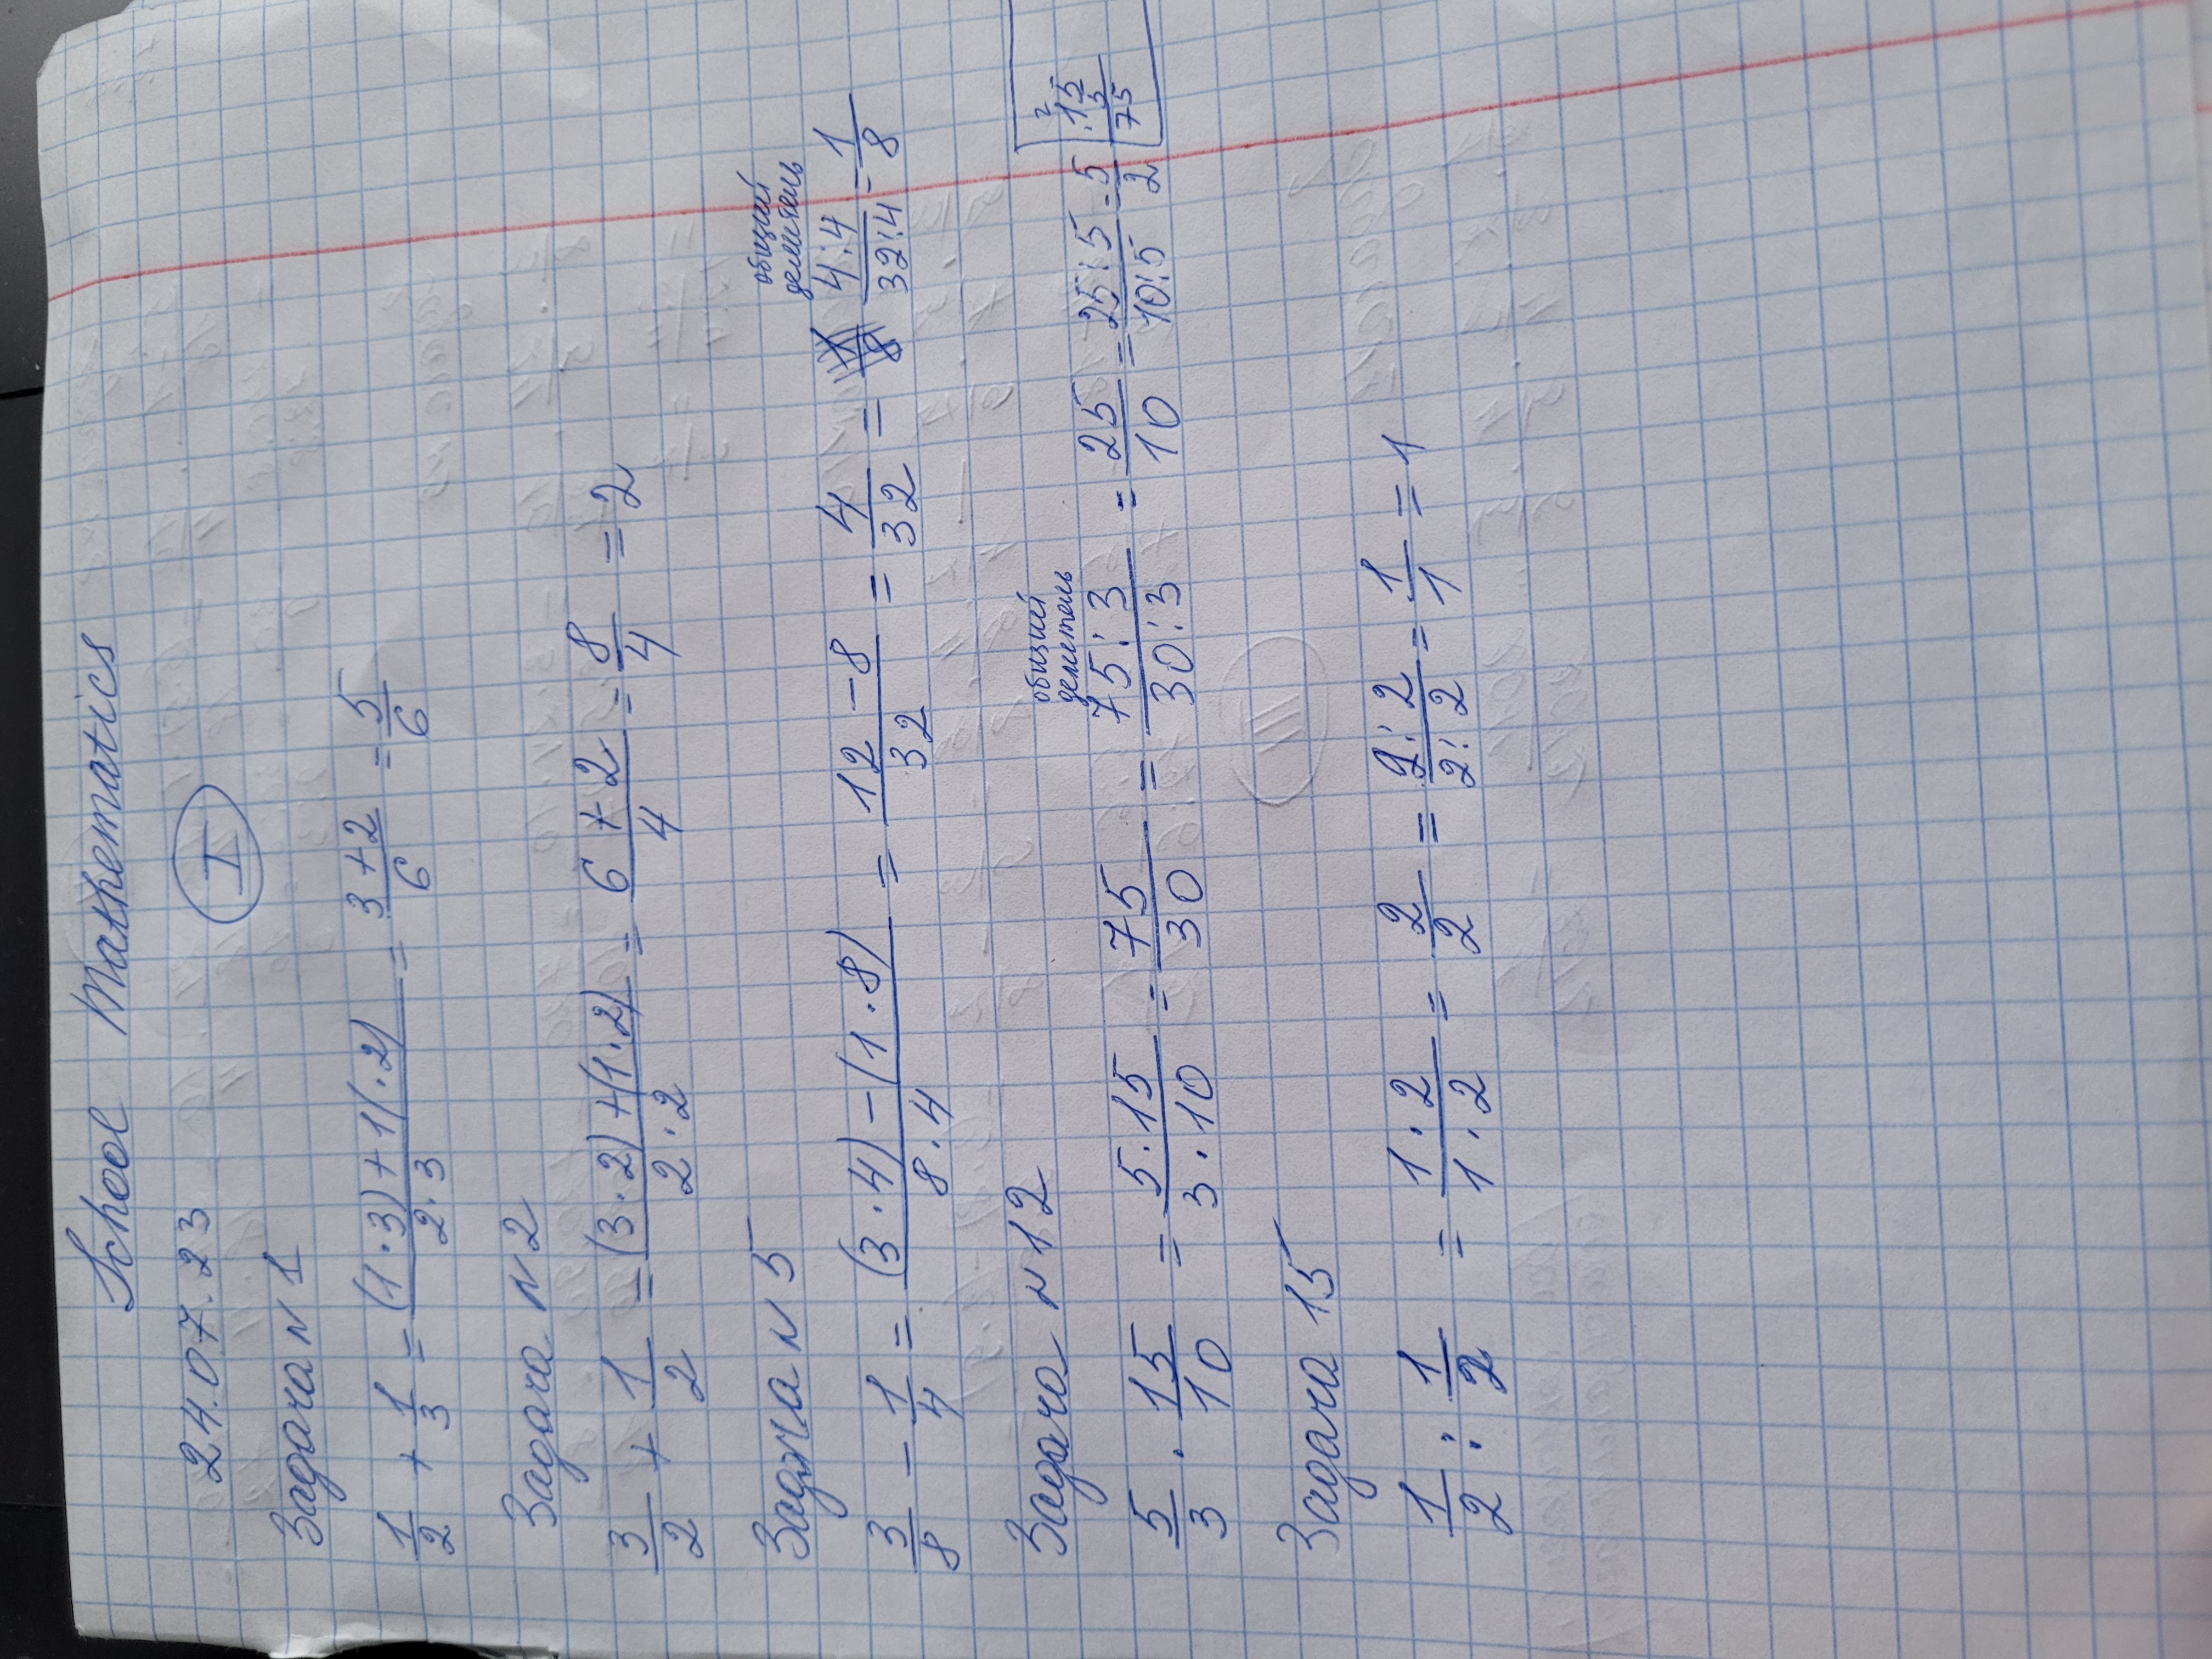 School Mathematics
24.07.23 I
Задача N 1
1/2 + 1/3 = (1·3)+1(·2) / 2·3 = 3+2 / 6 = 5/6
Задача N 2
3/2 + 1/2 = (3·2)+(1·2) / 2·2 = 6+2 / 4 = 8/4 = 2
Задача N 5
общий
делитель
3/8 - 1/4 = (3·4)-(1·8) / 8·4 = 12-8 / 32 = 4/32 = 4:4 / 32:4 = 1/8
Задача N 12
общий
делитель
5/3 · 15/10 = 5·15 / 3·10 = 75/30 = 75:3 / 30:3 = 25/10 = 25:5 / 10:5 = 5/2
2
15
· 5
75
Задача 15
1/2 : 1/2 = 1·2 / 1·2 = 2/2 = 2:2 / 2:2 = 1/1 = 1